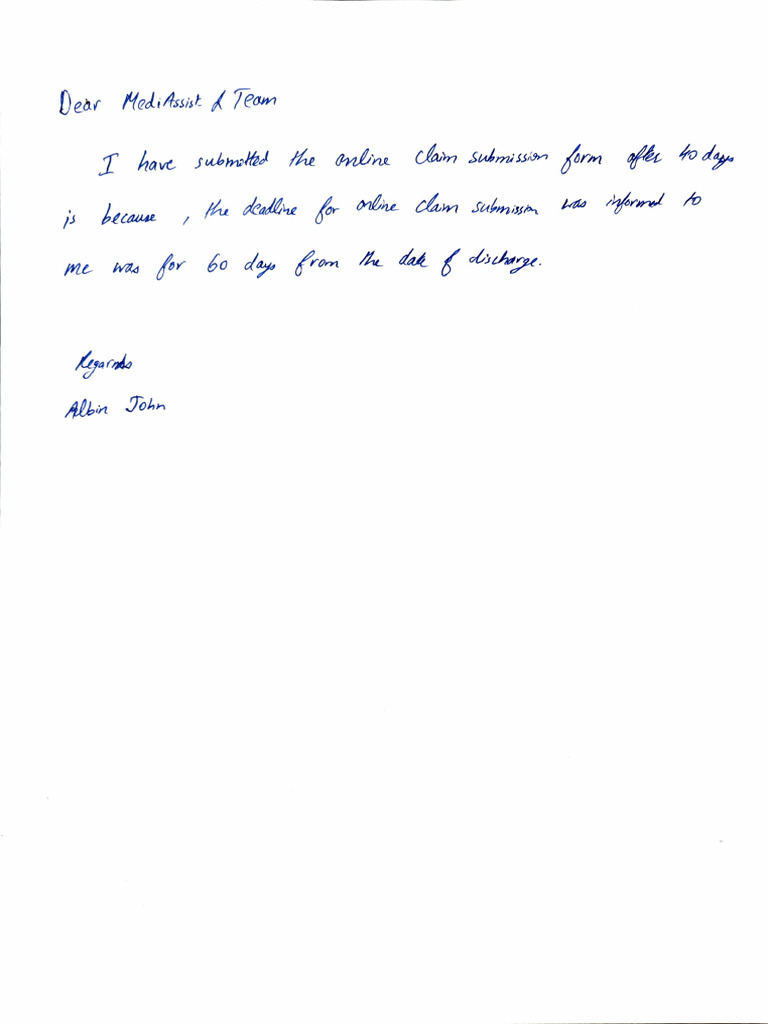 Dear MediAssist & Team
I have submitted the online claim submission form after 40 days
is because , the deadline for online claim submission was informed to
me was for 60 days from the date of discharge.
Regards
Albin John